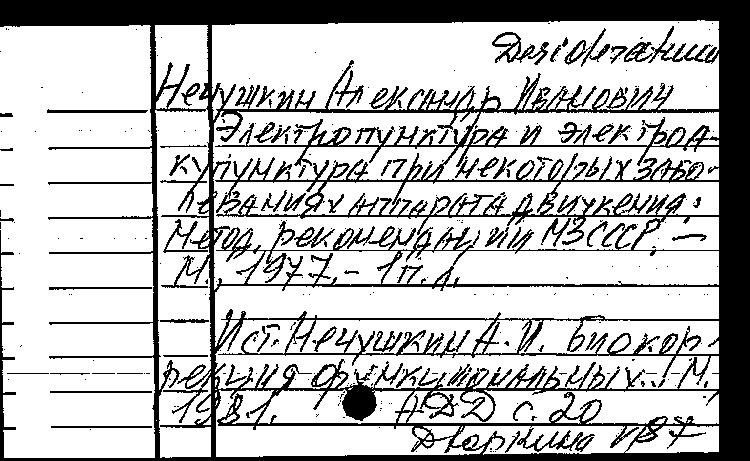 Desideratum
Нечушкин Александр Иванович
Электропунктура и электроа-
купунктура при некоторых забо-
леваниях аппарата движения:
Метод. рекомендации МЗ СССР. —
М., 1977. - 1 п. л.
Ист. Нечушкин А. И. Биокор-
рекция функциональных... М.,
1981. АДД с. 20
Дворкина